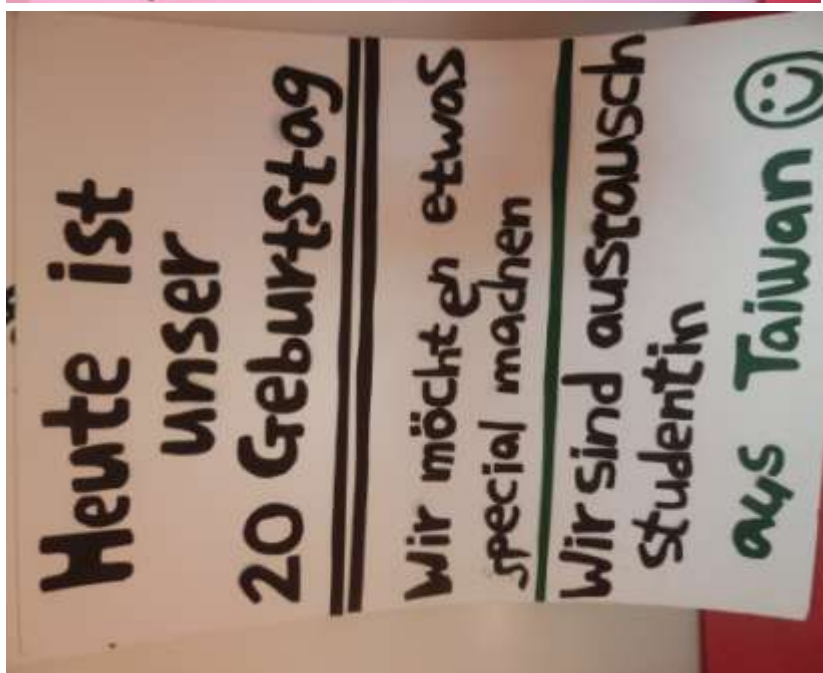 Heute ist
unser
20 Geburtstag
Wir möchten etwas
special machen
Wir sind austausch
studentin
aus Taiwan